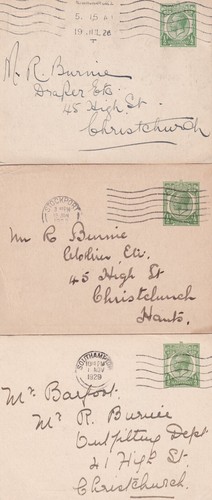 5. 15 PM
19 JUL 26
Mr R Burnie
Draper Etc
45 High St.
Christchurch
STOCKPORT
Mr R Burnie
Clothier Etc.
45 High St
Christchurch
Hants.
SOUTHAMPTON
1 NOV
1929
Mr. Barfoot.
Mr. R. Burnie
Outfitting Dept
41 High St.
Christchurch.